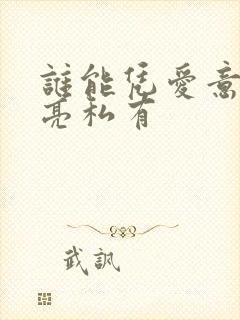 誰能凭愛意
亮私有
武訊